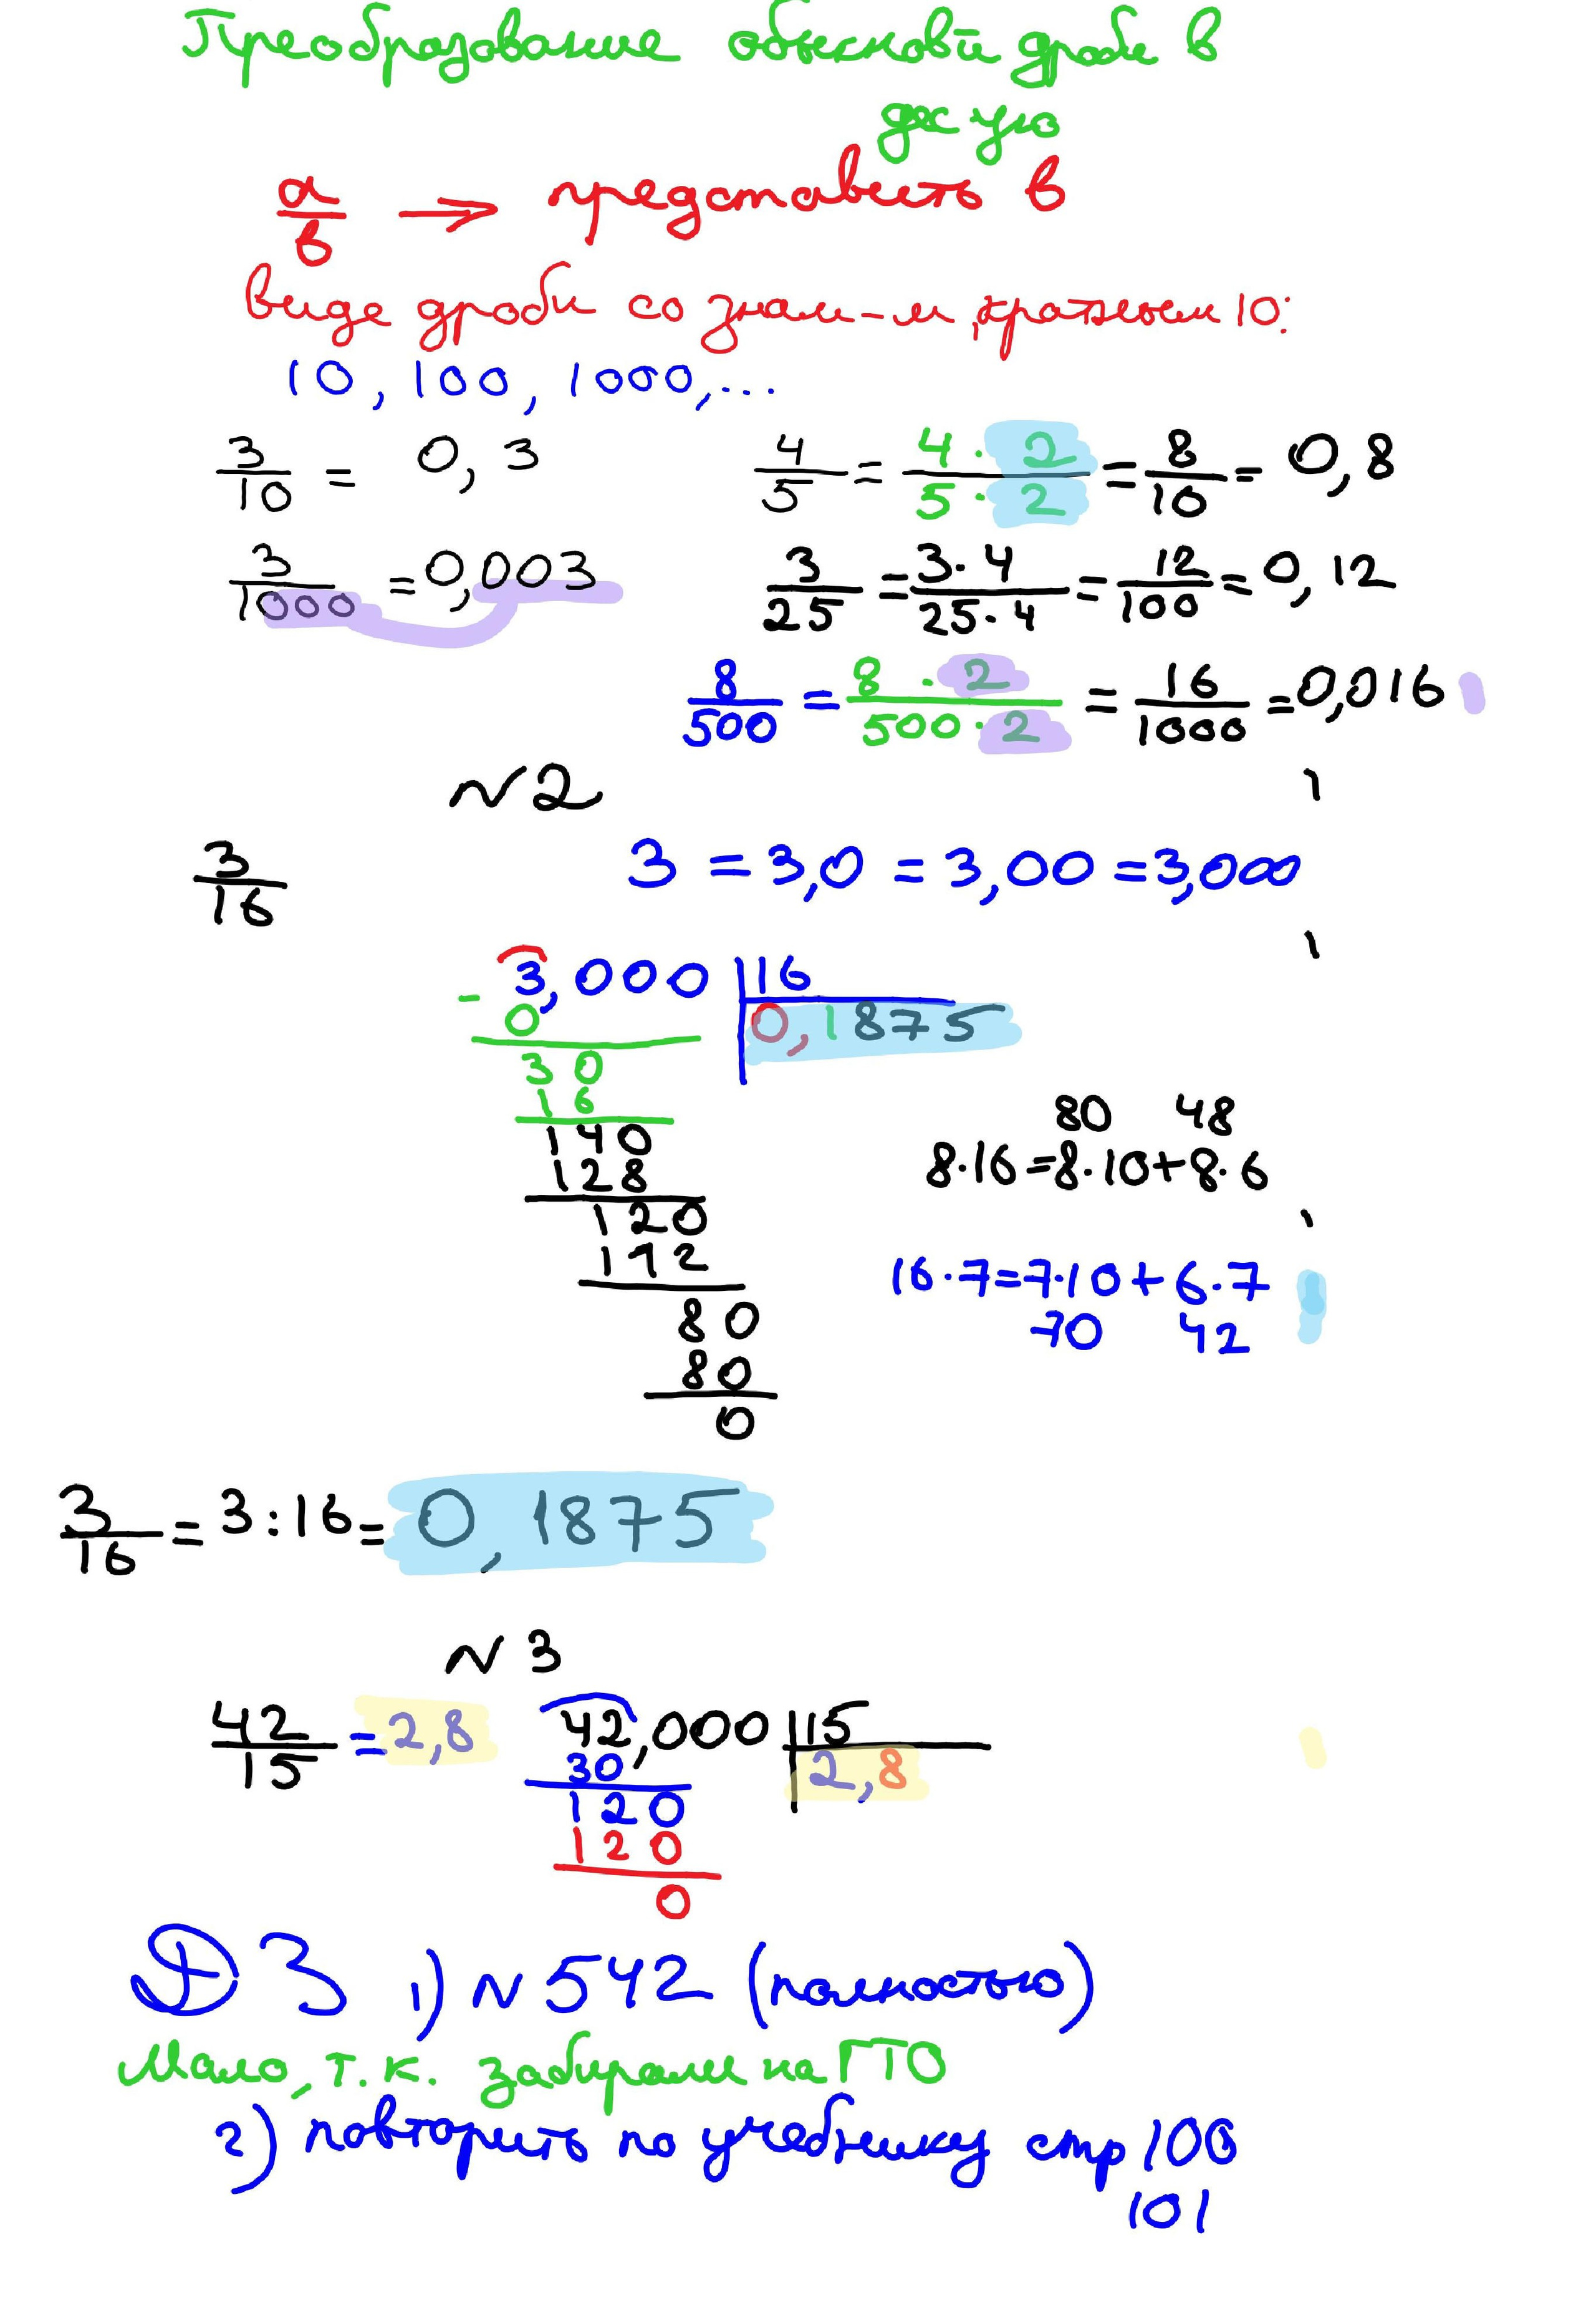 Преобразование обыкновй дроби в
дес ую
a/b ⇒ представить в
виде дроби со знам-м, кратным 10:
10, 100, 1000, ...
3/10 = 0,3
4/5 = 4·2/5·2 = 8/10 = 0,8
3/1000 = 0,003
3/25 = 3·4/25·4 = 12/100 = 0,12
8/500 = 8·2/500·2 = 16/1000 = 0,016
N2
3/16
3 = 3,0 = 3,00 = 3,000
3,000 | 16
- 0
0,1875
30
16
140
128
120
112
80
80
0
80 48
8·16=8·10+8·6
16·7=7·10+6·7
70 42
3/16 = 3:16 = 0,1875
N 3
42/15 = 2,8
42,000 | 15
30
2,8
120
120
0
ДЗ 1) N 542 (полностью)
Мало, т.к. забирали на ГТО
2) повторить по учебнику стр 100
101